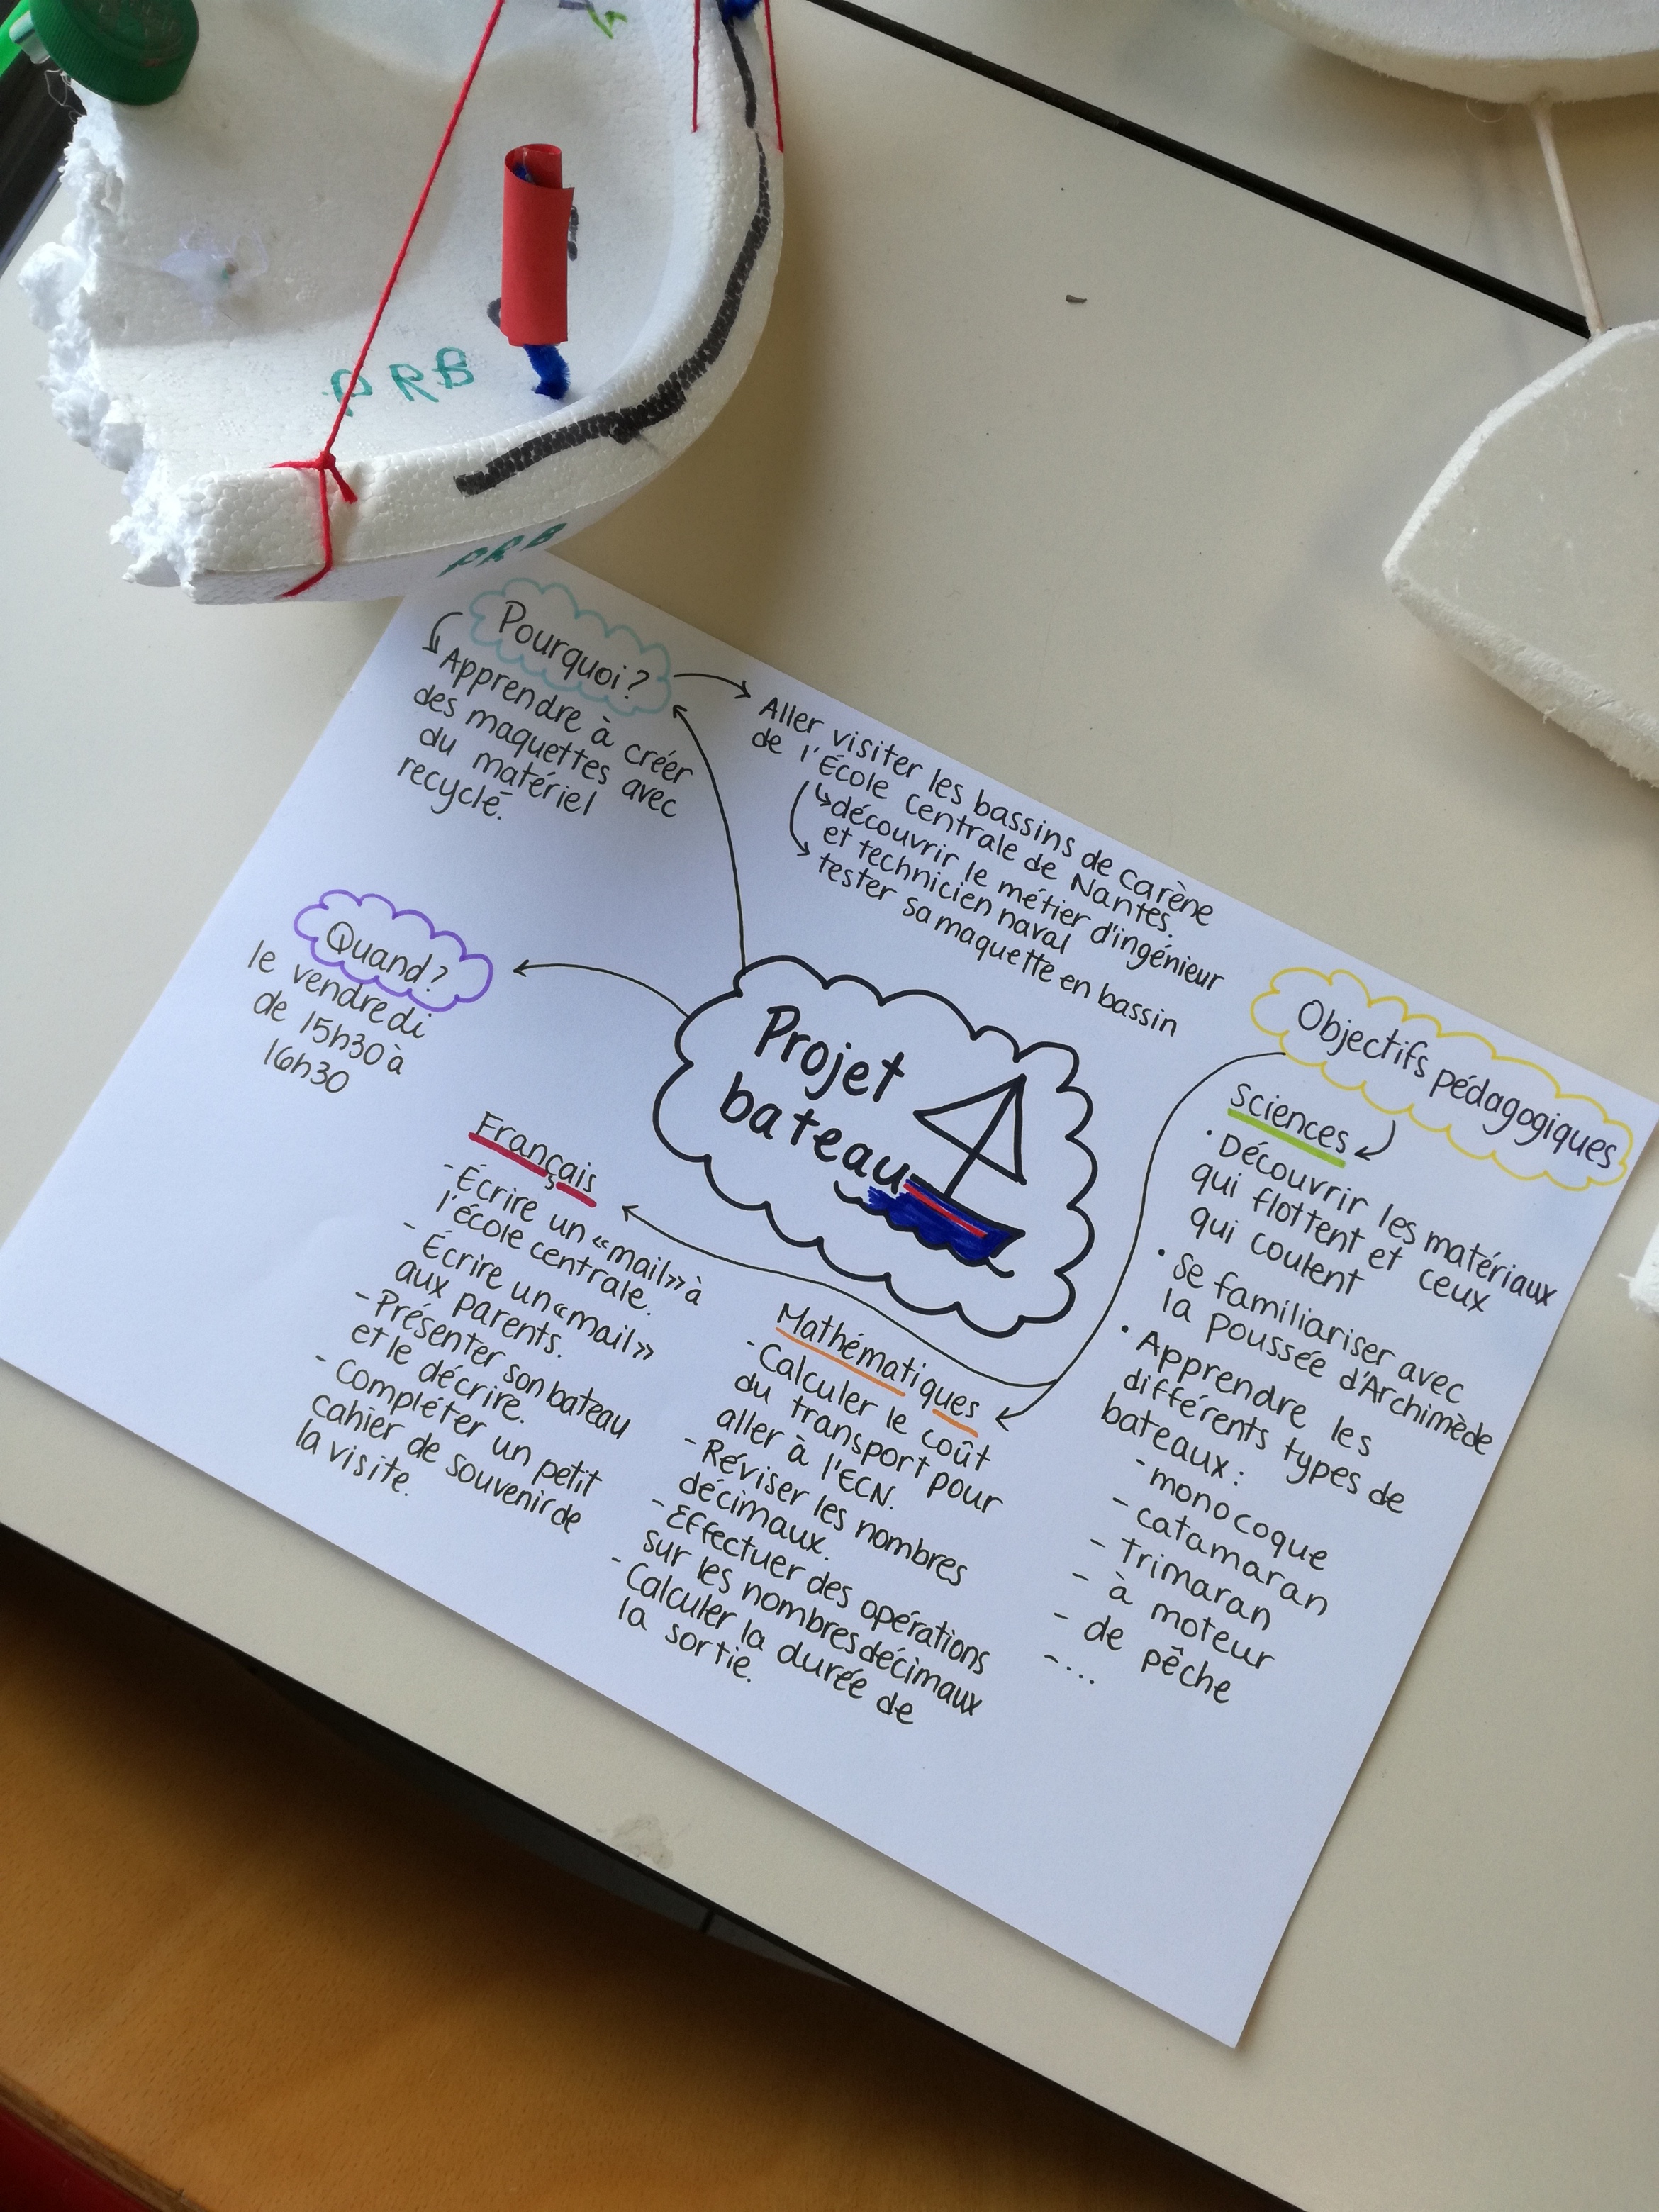 PRB
PRB
Pourquoi?
Apprendre à créer
des maquettes avec
du matériel
recyclé.
Aller visiter les bassins de carène
de l'École Centrale de Nantes.
découvrir le métier d'ingénieur
et technicien naval
tester sa maquette en bassin
Quand?
le vendredi
de 15h30 à
16h30
Projet
bateau
Objectifs pédagogiques
Sciences
• Découvrir les matériaux
qui flottent et ceux
qui coulent
• Se familiariser avec
la Poussée d'Archimède
• Apprendre les
différents types de
bateaux :
- monocoque
- catamaran
- Trimaran
- à moteur
- de pêche
- ...
Français
- Écrire un «mail» à
l'école centrale.
- Écrire un «mail»
aux parents.
- Présenter son bateau
et le décrire.
- Compléter un petit
cahier de souvenir de
la visite.
Mathématiques
- Calculer le coût
du transport pour
aller à l'ECN.
- Réviser les nombres
décimaux.
- Effectuer des opérations
sur les nombres décimaux
- Calculer la durée de
la sortie.